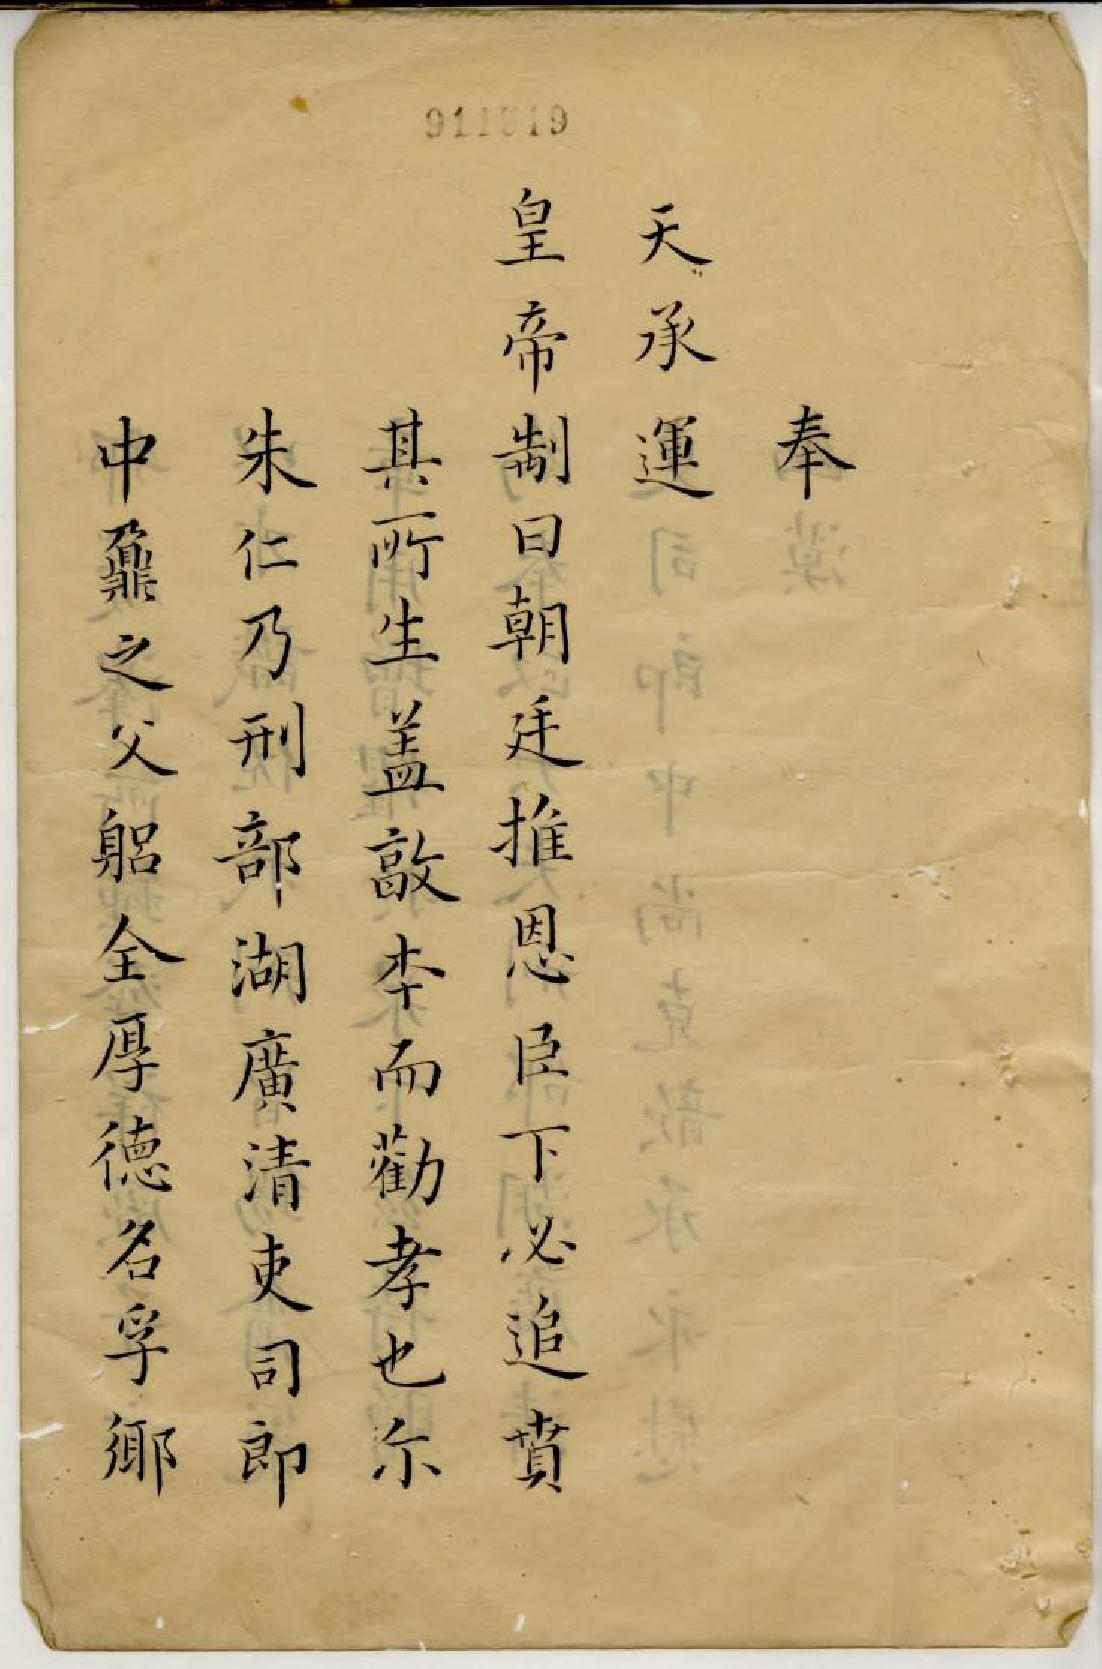 911019
奉
天承運
皇帝制曰朝廷推恩臣下必追賁
其所生盖敦本而勸孝也尓
朱仁乃刑部湖廣清吏司郎
中鼐之父躬全厚德名孚鄉